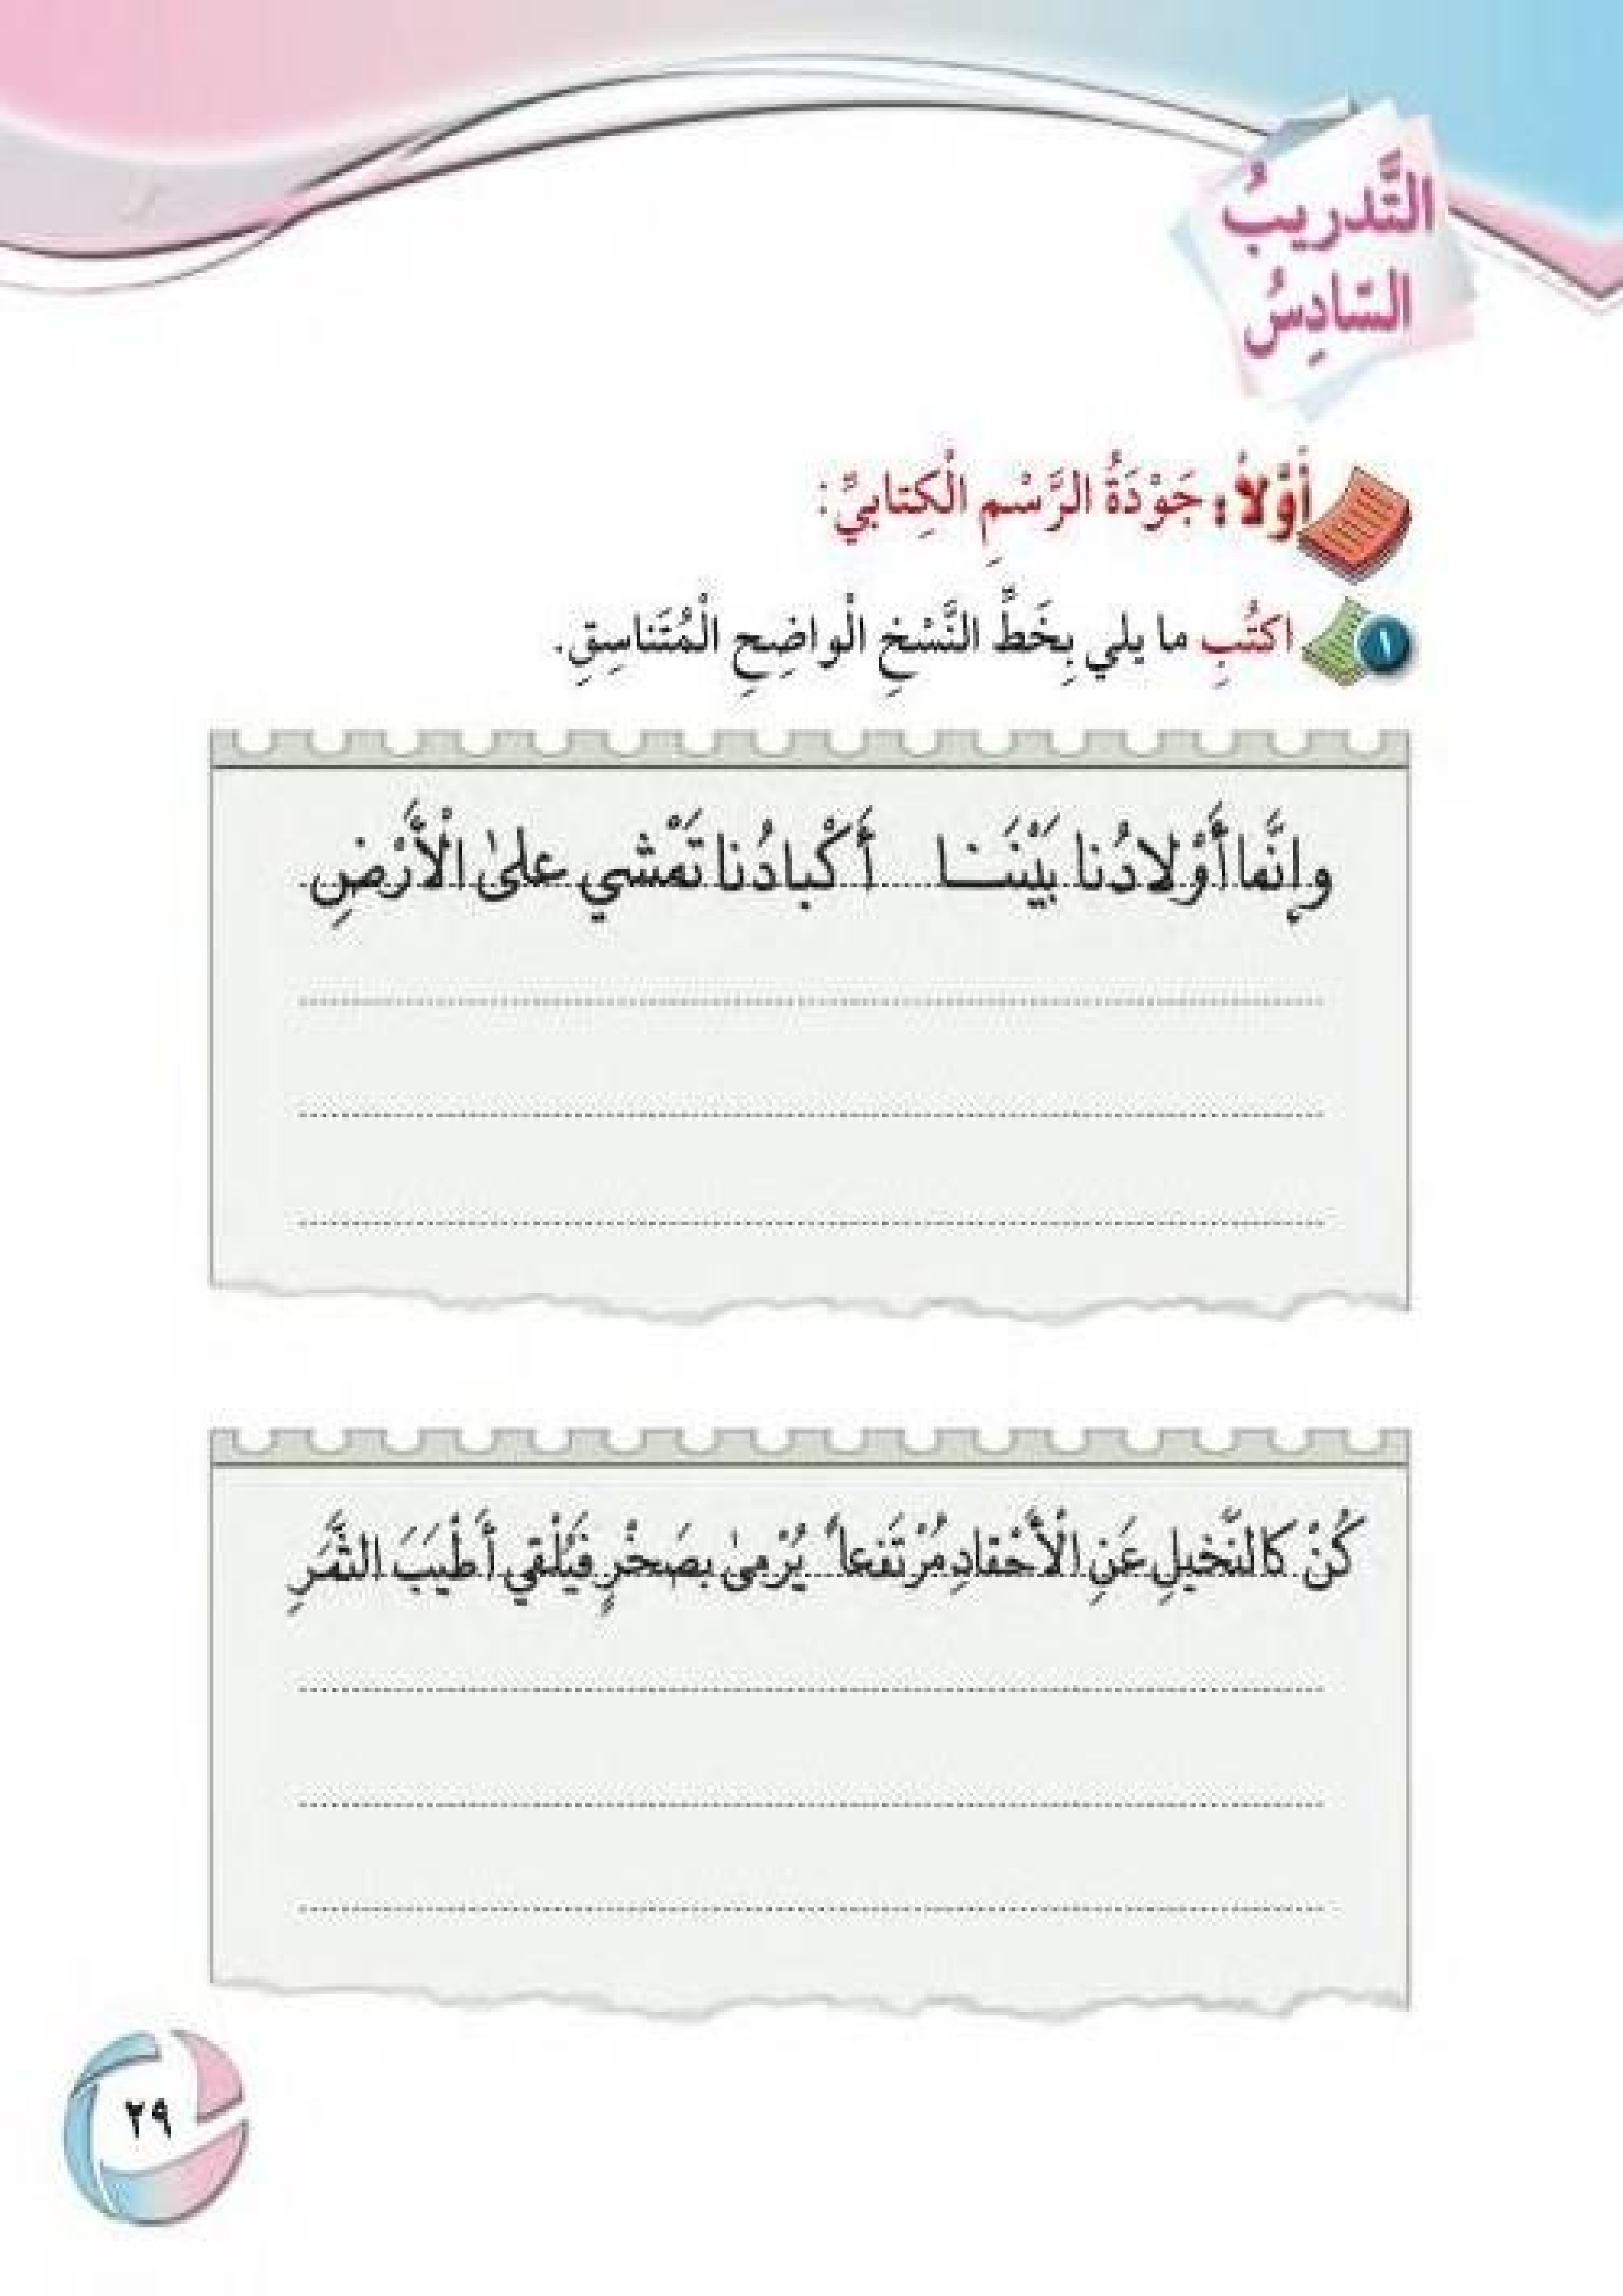 التَّدريبُ
السّادِسُ
أَوَّلاً: جَوْدَةُ الرَّسْمِ الْكِتابيِّ:
١ اكتُبِ ما يلي بِخَطِّ النَّسْخِ الْواضِحِ الْمُتَناسِقِ.
وإنَّما أَوْلادُنا بَيْنَنـا أَكْبادُنا تَمْشي علىٰ الْأَرْضِ
كُنْ كالنَّخيلِ عَنِ الْأَحْقادِ مُرْتَفعاً يُرْمىٰ بصَخْرٍ فَيُلْقي أَطْيَبَ الثَّمَرِ
٢٩